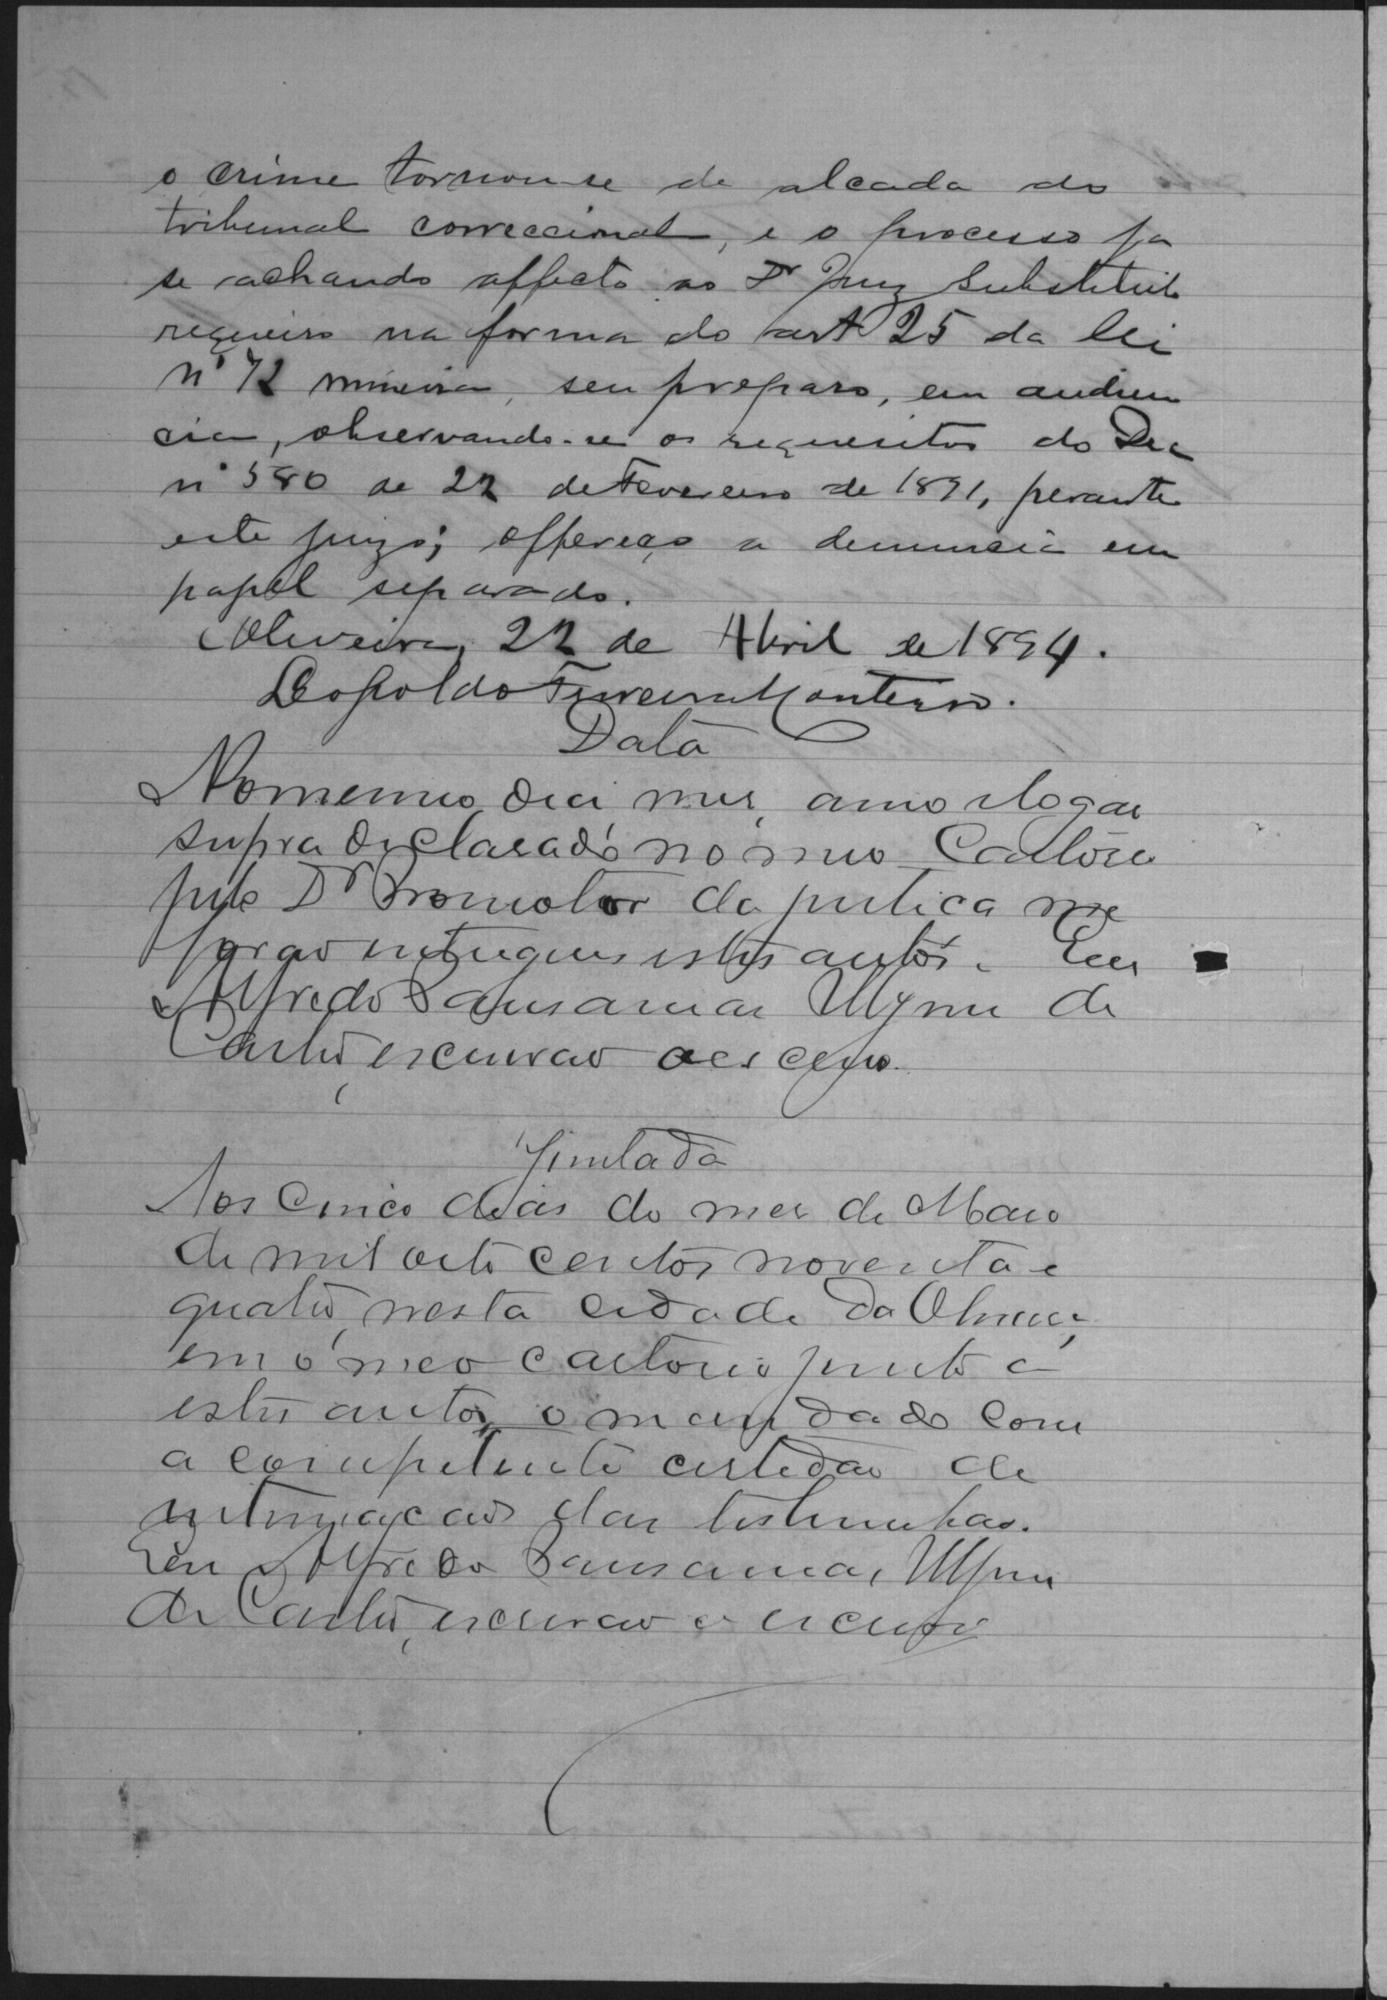 o crime tornou-se de alçada do
tribunal correccional, e o processo ja
se achando affecto ao Dr Juiz Substituto
requeiro na forma do art 25 da lei
nº 72 mineira, seu preparo, em audien
cia, observando-se os requesitos do Dec
nº 580 de 22 de Fevereiro de 1891, perante
este juizo; offereço a denuncia em
papel separado.
Oliveira, 22 de Abril de 1894.
Leopoldo Ferreira Monteiro.
Data
No mesmo dia, mes, anno e logar
supra declarado, no meo Cartorio
pelo Dr Promotor da justica me
forão entregues estes autos. Eu
Alfredo de Castro, escrivão o escrevo.
Juntada
Aos cinco dias do mes de Maio
de mil oito centos noventa e
quatro, nesta cidade da Oliveira,
em o meo cartorio junto a
estes autos, o mandado com
a competente certidão de
intimação das testimunhas.
Eu Alfredo
de Castro, escrivão o escrevi